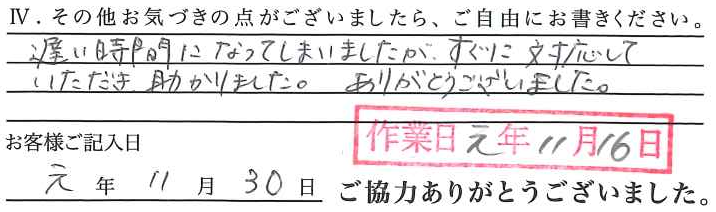 Ⅳ.その他お気づきの点がございましたら、ご自由にお書きください。
遅い時間になってしまいましたが、すぐに対応して
いただき助かりました。 ありがとうございました。
お客様ご記入日
作業日元年11月16日
元年11月30日 ご協力ありがとうございました。